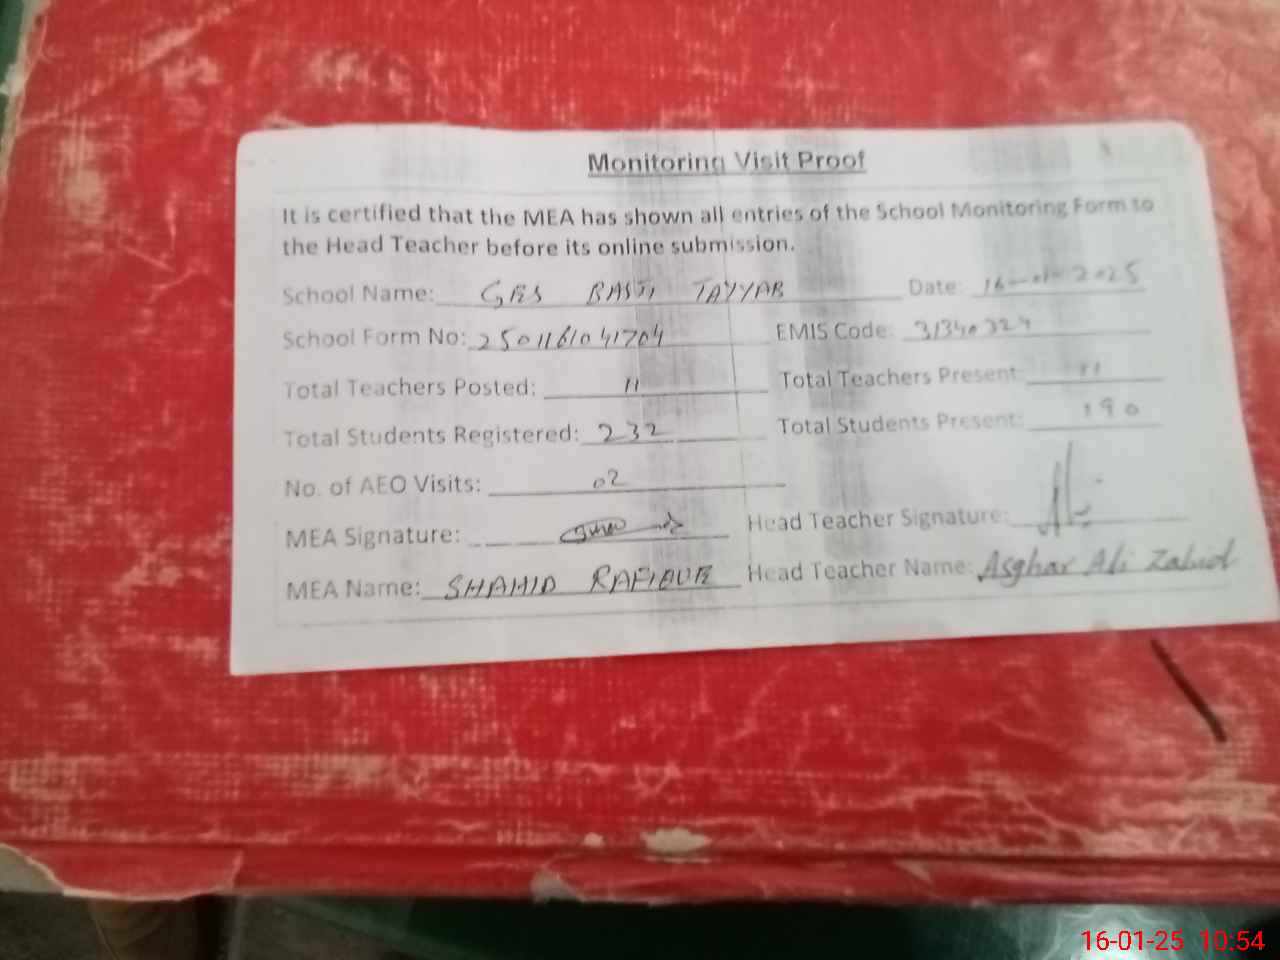 Monitoring Visit Proof
It is certified that the MEA has shown all entries of the School Monitoring Form to
the Head Teacher before its online submission.
School Name: GES BASTI TAYYAB Date: 16-01-2025
School Form No: 2501161041704 EMIS Code: 31340324
Total Teachers Posted: 11 Total Teachers Present: 11
Total Students Registered: 232 Total Students Present: 190
No. of AEO Visits: 02
MEA Signature: Head Teacher Signature:
MEA Name: SHAHID Head Teacher Name: Asghar Ali Zahid
16-01-25 10:54